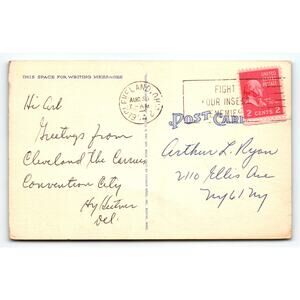 THIS SPACE FOR WRITING MESSAGES
CLEVELAND, OHIO
AUG 30
FIGHT
YOUR INSECT
ENEMIES
UNITED STATES POSTAGE
2 CENTS 2
POST CARD
Hi Art
Greetings from
Cleveland The
Convention City
Hy
Del.
Arthur L. Ryan
2110 Ellis Ave
Ny 61 Ny